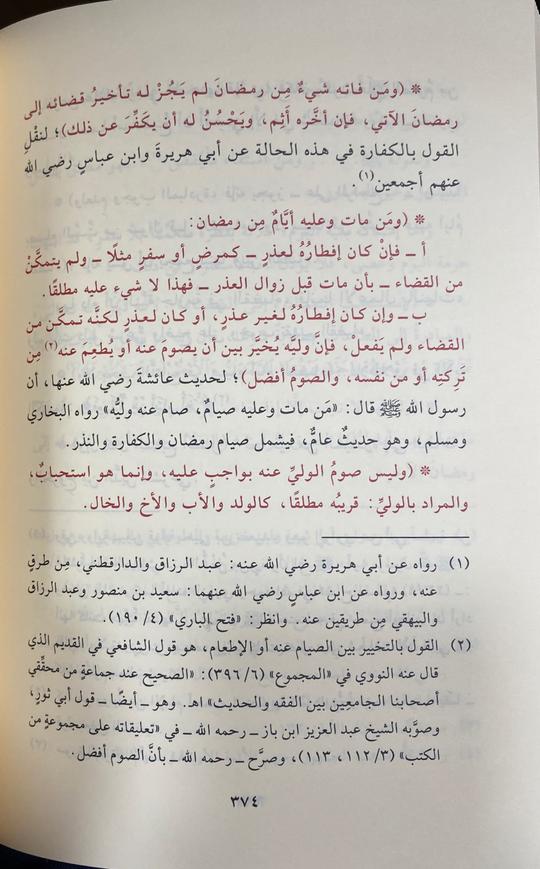 * (ومَن فاته شيءٌ مِن رمضانَ لم يَجُزْ له تأخيرُ قضائه إلى
رمضانَ الآتي، فإن أخَّره أَثِم، ويَحْسُنُ له أن يكفِّرَ عن ذلك)؛ لنقْلِ
القول بالكفارة في هذه الحالة عن أبي هريرةَ وابن عباسٍ رضي الله
عنهم أجمعين(١).
* (ومَن مات وعليه أيَّامٌ مِن رمضان:
أ ـ فإنْ كان إفطارُهُ لعذرٍ ـ كمرضٍ أو سفرٍ مثلًا ـ ولم يتمكَّنْ
من القضاء ـ بأن مات قبل زوال العذر ـ فهذا لا شيء عليه مطلقًا.
ب ـ وإن كان إفطارُهُ لغير عذرٍ، أو كان لعذرٍ لكنَّه تمكَّن من
القضاء ولم يَفعلْ، فإنَّ وليَّه يُخيَّر بين أن يصومَ عنه أو يُطعِمَ عنه(٢) مِن
تَرِكتِه أو من نفسه، والصومُ أفضل)؛ لحديث عائشةَ رضي الله عنها، أن
رسول الله ﷺ قال: «مَن مات وعليه صيامٌ، صام عنه وليُّه» رواه البخاري
ومسلم، وهو حديثٌ عامٌّ، فيشمل صيام رمضان والكفارة والنذر.
* (وليس صومُ الوليِّ عنه بواجبٍ عليه، وإنما هو استحبابٌ،
والمراد بالوليِّ: قريبُه مطلقًا، كالولد والأب والأخ والخال.
(١) رواه عن أبي هريرة رضي الله عنه: عبد الرزاق والدارقطني، مِن طرقٍ
عنه، ورواه عن ابن عباسٍ رضي الله عنهما: سعيد بن منصور وعبد الرزاق
والبيهقي مِن طريقين عنه. وانظر: «فتح الباري» (٤/ ١٩٠).
(٢) القول بالتخيير بين الصيام عنه أو الإطعام، هو قول الشافعي في القديم الذي
قال عنه النووي في «المجموع» (٦/ ٣٩٦): «الصحيح عند جماعةٍ من محقِّقي
أصحابنا الجامعين بين الفقه والحديث» اهـ. وهو ـ أيضًا ـ قول أبي ثورٍ،
وصوَّبه الشيخ عبد العزيز ابن باز ـ رحمه الله ـ في «تعليقاته على مجموعةٍ من
الكتب» (٣/ ١١٢، ١١٣)، وصرَّح ـ رحمه الله ـ بأنَّ الصوم أفضل.
٣٧٤